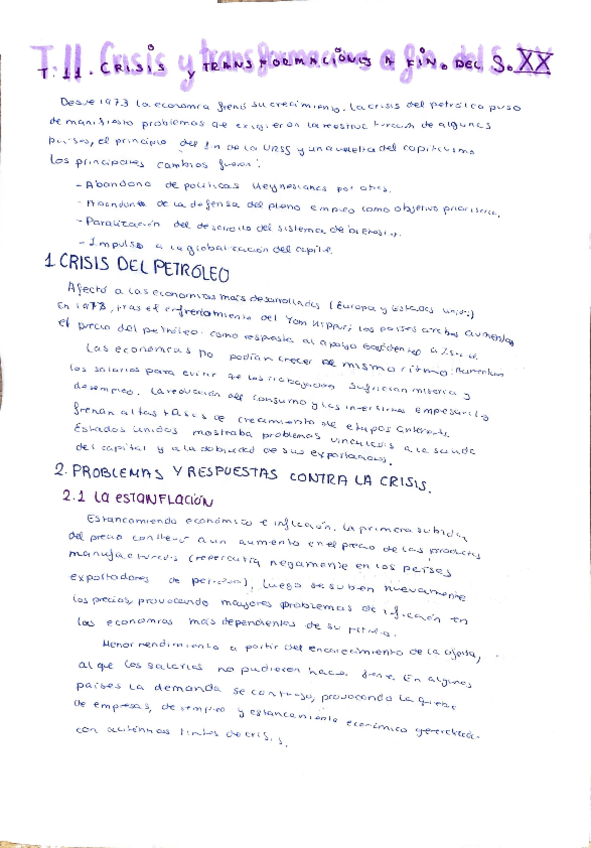 T.11. CRISIS y TRANSFORMACIONES A FIN. DEL S. XX
Desde 1973 la economía frenó su crecimiento. La crisis del petróleo puso
de manifiesto problemas que exigieron la reestructuración de algunos
países, el principio del fin de la URSS y una vuelta del capitalismo
Los principales cambios fueron:
- Abandono de políticas Keynesianas por otras.
- Abandono de la defensa del pleno empleo como objetivo prioritario.
- Paralización del desarrollo del sistema de bienestar.
- Impulso a la globalización del capital.
1 CRISIS DEL PETRÓLEO
Afectó a las economías más desarrolladas (Europa y Estados Unidos)
En 1973, tras el enfrentamiento del Yom Kippur, los países árabes aumentan
el precio del petróleo como respuesta al apoyo occidental a
Las economías no podían crecer al mismo ritmo. Aumentan
los salarios para evitar que los trabajadores sufrieran miseria y
desempleo. La reducción del consumo y las inversiones empresariales
frenan altas tasas de crecimiento de etapas anteriores.
Estados Unidos mostraba problemas vinculados a la salida
del capital y a la debilidad de sus exportaciones.
2. PROBLEMAS Y RESPUESTAS CONTRA LA CRISIS.
2.1 La ESTANFLACIÓN
Estancamiento económico e inflación. La primera subida
del precio conllevó a un aumento en el precio de los productos
manufacturados (repercutía negamente en los países
exportadores de petróleo), luego se suben nuevamente
los precios, provocando mayores problemas de inflación en
las economías más dependientes de su petróleo.
Menor rendimiento a partir del encarecimiento de la oferta,
al que los salarios no pudieron hacer frente. En algunos
países la demanda se contrajo, provocando la quiebra
de empresas, desempleo y estancamiento económico
con auténticos tintes de crisis.